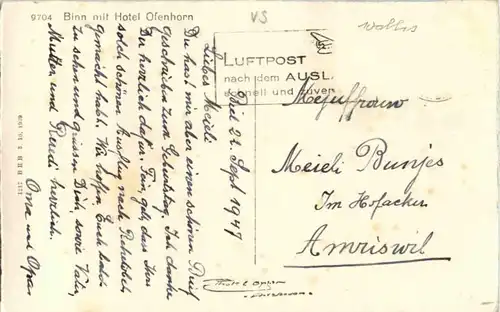 9704 Binn mit Hotel Ofenhorn
VS
Wallis
LUFTPOST
nach dem AUSL.
schnell und zuver
Biel 22. Sept 1947
Liebes Meieli
Du hast mir aber einen schönen Brief
geschrieben zum Geburtstag. Ich danke
Dir herzlich dafür. Fein, gäll, dass Ihr
solch schönen Ausflug nach Rehetobel
gemacht habt. Wir hoffen, Euch bald
zu sehen und grüssen Dich, sowie Vater,
Mutter und Ruedi herzlich.
Oma und Opa
Mejuffrouw
Meieli Bunjes
Im Hofacker
Amriswil